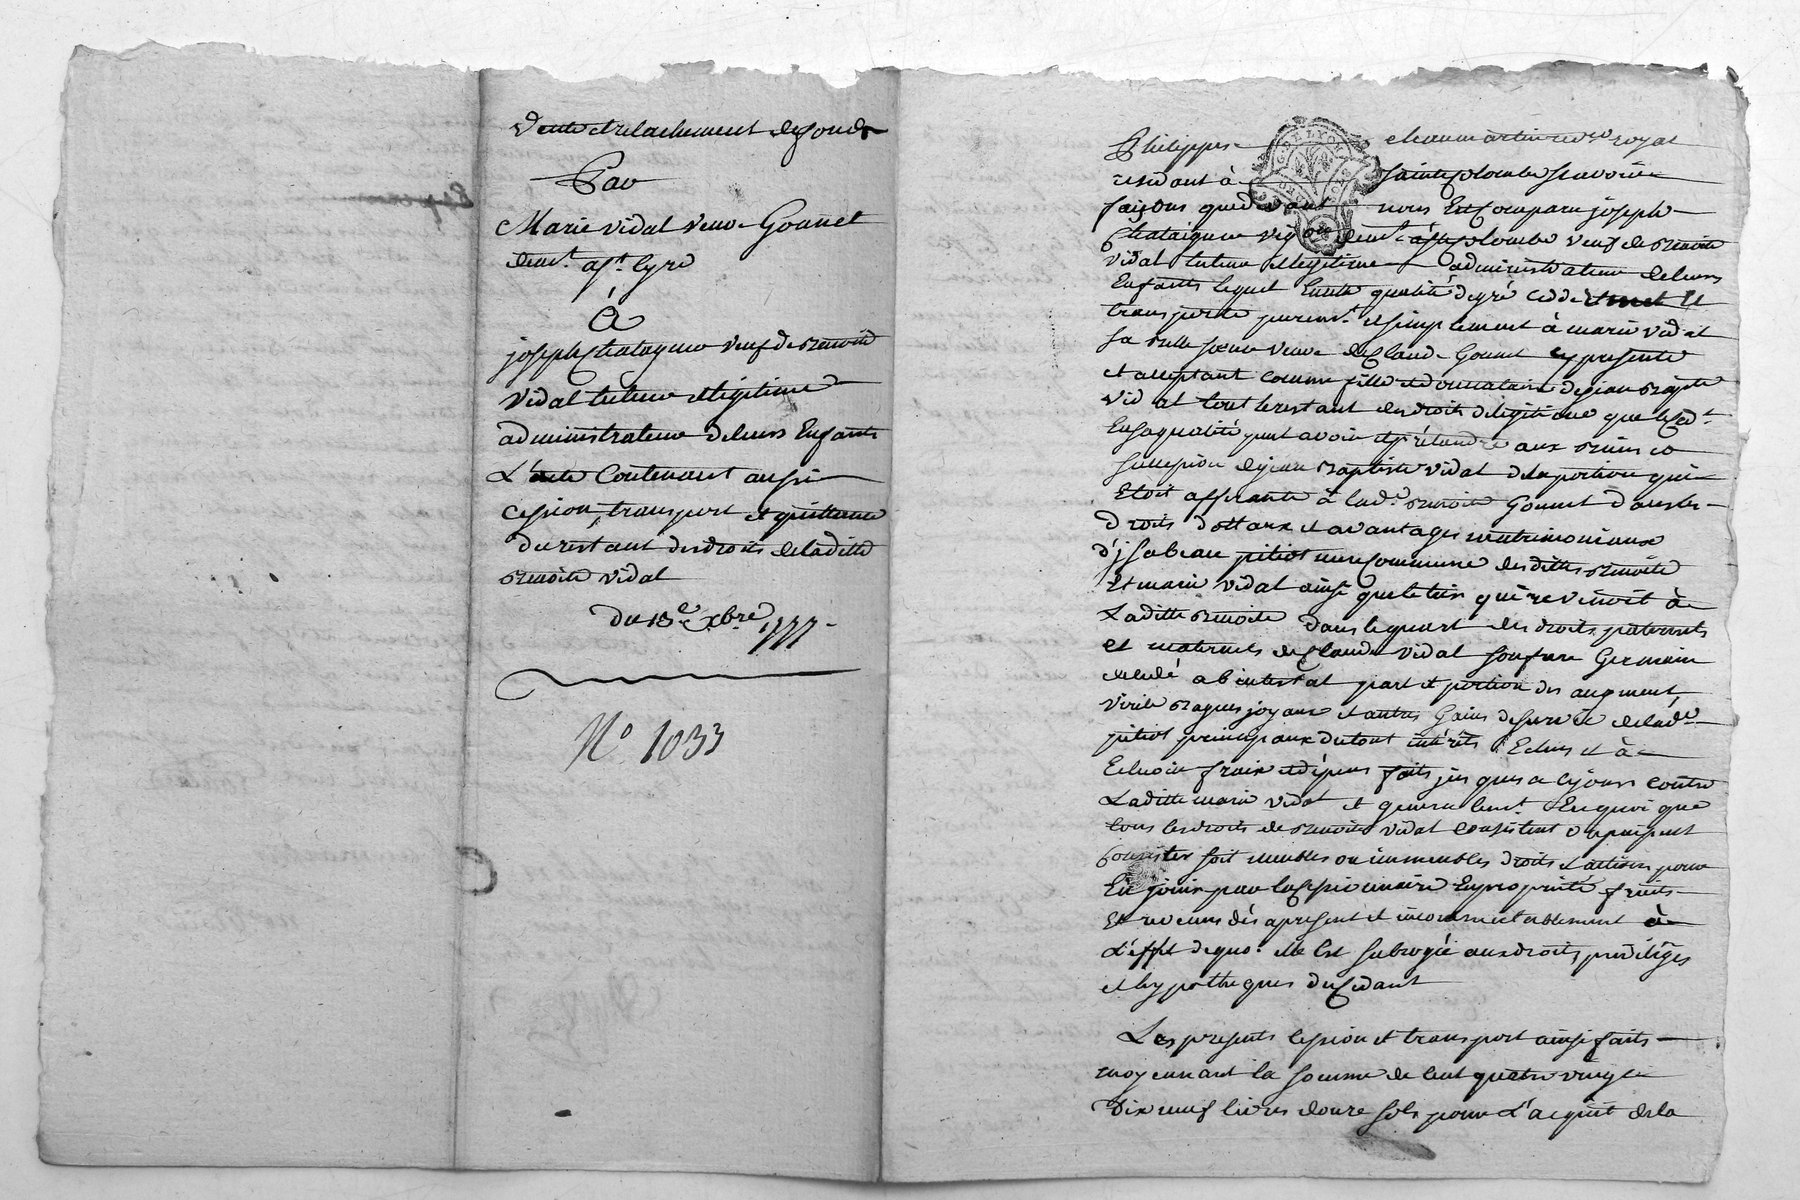 Vente et relachement de fonds
Par
Marie vidal veuve Gonnet
demt. a st. Cyre
à
joseph Chataigner veuf de Benoite
Vidal tuteur et legitime
administrateur de leurs Enfants
L'acte Contenant aussi
cession, transport et quittance
du restant des droits de laditte
Benoite vidal
Du 18e. xbre 1777
N° 1033
GEN DE LYON
Philippes Chaumartin no.re royal
residant à Sainte Colombe scavoir
faisons que devant nous Est Comparu joseph
Chataigner demt. à ste Colombe veuf de Benoite
vidal tuteur et legitime administrateur de leurs
Enfants lequel En cette qualité de gré cedde et
transporte puremt. et simplement à marie vidal
sa belle soeur veuve de Claude Gonnet cy presente
et acceptant comme fille et donnataire de jean Bapte
vidal tout le restant des droits de legitime que led.t
En sa qualité peut avoir et prétendre aux biens et
succession de jean Baptiste vidal de la portion qui
Etoit afferante à lad.e Benoite Gonnet dans les
droits dottaux et avantages matrimoniaux
d'jsabeau pitiot mere commune desdittes Benoite
Et marie vidal ainsi que le tier qui revenoit à
Laditte Benoite dans le quart des droits paternels
et maternels de Claude vidal son frere Germain
decedé abintestat part et portion des augment
virile Bagues joyaux et autres Gains de survie de lad.e
pitiot principaux du tout intérêts Echus et à
Echoir frais et dépens faits jusques a ce jour contre
Laditte marie vidal et generalemt. En quoi que
tous les droits de Benoite vidal consistent ou puissent
consister soit meubles ou immeubles droits et actions pour
En jouir par la cessionnaire En propriété fruits
Et revenus dès apresent et incommutablement à
L'effet de quoi elle Est subrogée aux droits, privilèges
et hypotheques du Cedant
Les presents cession et transport ainsi faits
moyennant la somme de Cent quatre vingt
Dix neuf livres douze sols pour L'acquit de la